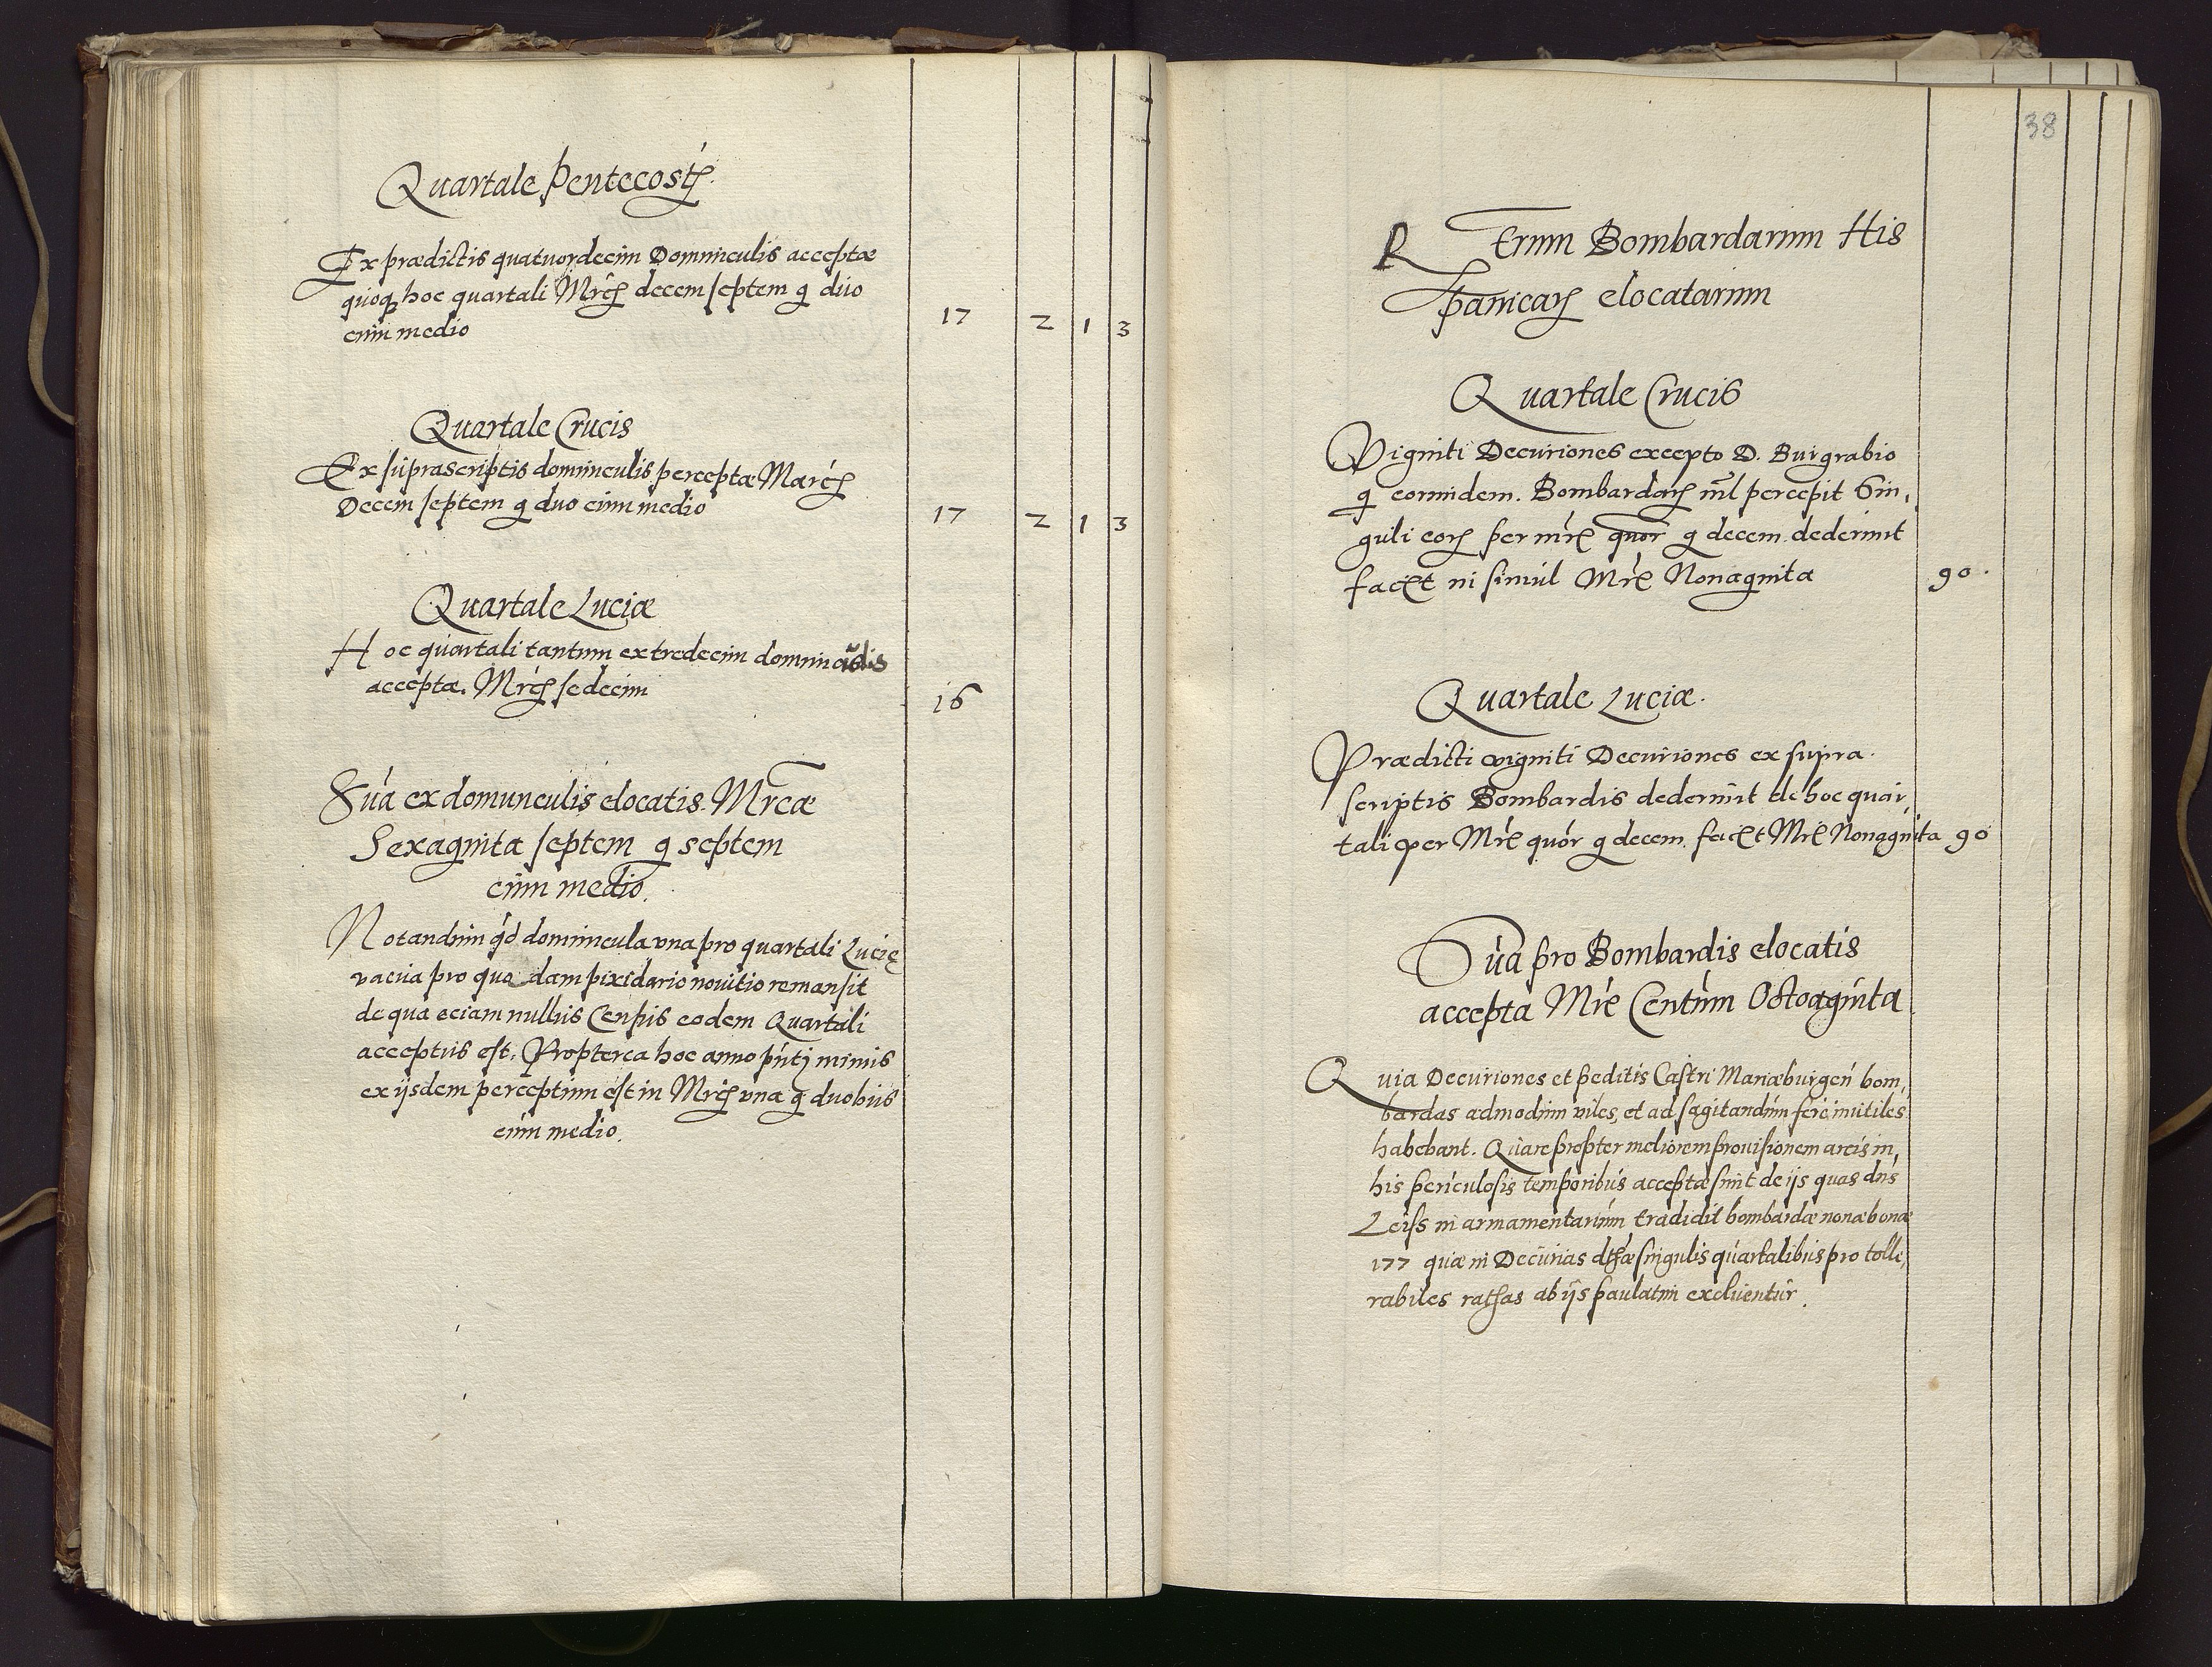 Quartale Pentecostꝭ.
Ex prædictis quatuordecim Domunculis acceptæ
quoqꝫ hoc quartali Mrcꝭ decem septem g duo
cum medio 17 2 1 3
Quartale Crucis
Ex suprascriptis domunculis perceptæ Marcꝭ
Decem septem g duo cum medio 17 2 1 3
Quartale Luciæ
Hoc quartali tantum ex tredecim domunculis
acceptæ. Mrcꝭ sedecim 16
Sūa ex domunculis elocatis. Mrcæ
Sexaginta septem g septem
cum medio.
Notandum qd domuncula vna pro quartali Lucię
vacua pro quodam pixidario nouitio remansit
de qua eciam nullus Census eodem Quartali
acceptus est. Propterea hoc anno pnti minus
ex ijsdem perceptum est in Mrcꝭ vna g duobus
cum medio.
38
Rerum Bombardarum His
panicarꝝ elocatarum
Quartale Crucis
Viginti Decuriones excepto D. Burgrabio
q eorundem. Bombardarꝝ nil percepit Sin,
guli eorꝝ per mrc quor g decem dederunt
facit in simul Mrc Nonaginta 90.
Quartale Luciæ.
Prædicti viginti Decuriones ex supra
scriptis Bombardis dederunt de hoc quar,
tali per Mrc quor g decem. facit Mrc Nonaginta 90
Sūa pro Bombardis elocatis
accepta Mrc Centum Octoaginta
Quia Decuriones et peditis Castri Mariæburgeñ bom,
bardas admodum viles, et ad sagitandum fere inutiles
habebant. Quare propter meliorem prouisionem arcis in,
his periculosis temporibus acceptæ sunt de ijs quas dns
Leiss in armamentarium tradidit bombardæ nonæ bonæ
177 quæ in Decurias singulis quartalibus pro tolle,
rabiles ab ijs paulatim exoluentur.